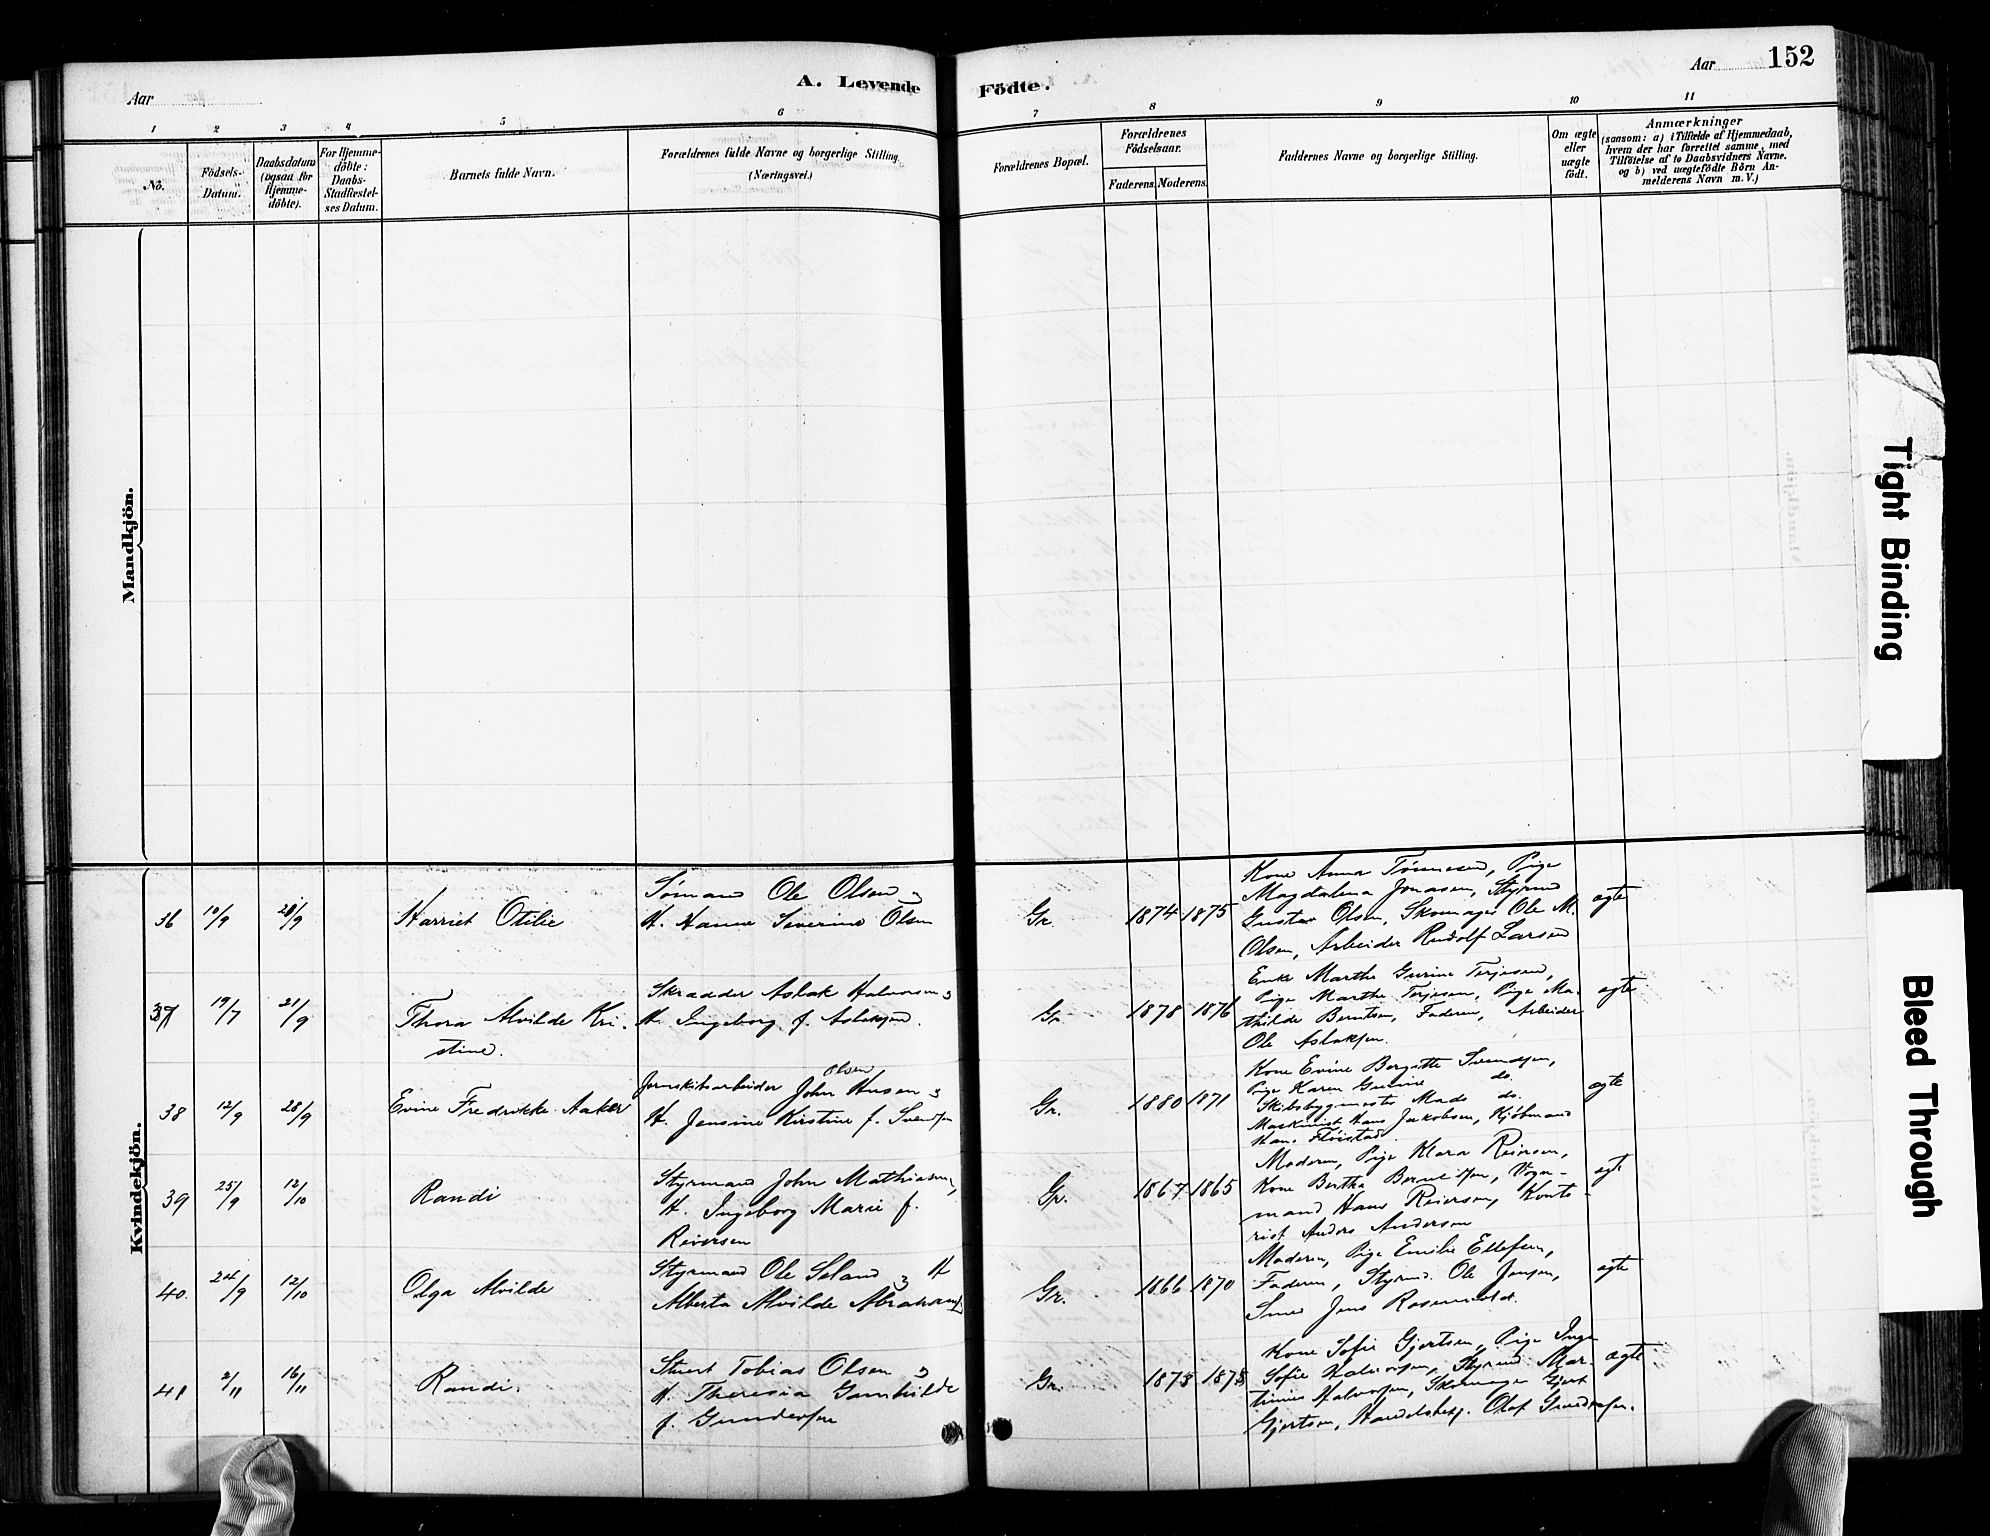 152
Aar
A. Levende
Födte.
Aar
1 2 3 4 5 6 7 8 9 10 11
No.
Födsels-
Datum.
Daabsdatum
(ogsaa for
Hjemme-
döbte).
For Hjemme-
döbte:
Daabs-
Stadfæstel-
ses Datum.
Barnets fulde Navn.
Forældrenes fulde Navne og borgerlige Stilling
(Næringsvei.)
Forældrenes Bopæl.
Forældrenes
Födselsaar.
Faderens. Moderens.
Faddernes Navne og borgerlige Stilling.
Om ægte
eller
uægte
födt.
Anmærkninger
(saasom: a) i Tilfælde af Hjemmedaab,
hvem der har forrettet samme, med
Tilföielse af to Daabsvidners Navne.
og b) ved uægtefödte Börn An-
melderens Navn m. V.)
Mandkjön.
Kvindekjön.
36 10/9 28/9 Harriet Otilie
Sømand Ole Olsen og
H. Hanne Severine Olsen
Gr. 1874 1875
Kone Anna Tønnesen, Pige
Magdalena Jonasen, Styrmd
Gustav Olsen, Skomager Ole M.
Olsen, Arbeider Rudolf Larsen
ægte
37 19/7 21/9 Thora Alvilde Kri-
stine.
Skrædder Aslak Halvorsen og
H. Ingeborg f. Aslaksen.
Gr. 1878 1876
Enke Marthe Gurine Terjesen,
Pige Marthe Terjesen, Pige Ma-
thilde Berntsen, Faderen, Arbeider
Ole Aslaksen.
ægte
38 12/9 28/9 Evine Fredrikke Aaker
Jernskibsarbeider John Olsen og
H. Jensine Kirstine f. Svendsen
Gr. 1880 1871
Kone Evine Bergitte Svendsen,
Pige Karen Gurine do.
Skibsbygmester Mads do.
Maskinist Hans Jakobsen, Kjøbmand
Han. Fløistad.
ægte
39 25/9 12/10 Randi
Styrmand John Mathiasen,
H. Ingeborg Marie f.
Reiersen
Gr. 1867 1865
Moderen, Pige Klara Reiersen,
Kone Bertha Berntsen, Vogn-
mand Hans Reiersen, Konto-
rist Anders Andersen
ægte
40. 24/9 12/10 Olga Alvilde
Styrmand Ole Seland og H
Alberta Alvilde Abrahams.
Gr. 1866 1870
Moderen, Pige Emilie Ellefsen,
Faderen, Styrmd. Ole Jensen,
Smed Jens Rosenvoldt.
ægte
41 2/11 16/11 Randi.
Stuert Tobias Olsen og
H. Theresia Gunhilde
f. Gundersen
Gr. 1873 1875
Kone Sofie Gjertsen, Pige Inga
Sofie Halvorsen, Styrmd. Mar-
tinius Halvorsen, Skomager Gjert
Gjertsen, Handelsbetj. Olaf Gundersen.
ægte
Tight Binding
Bleed Through